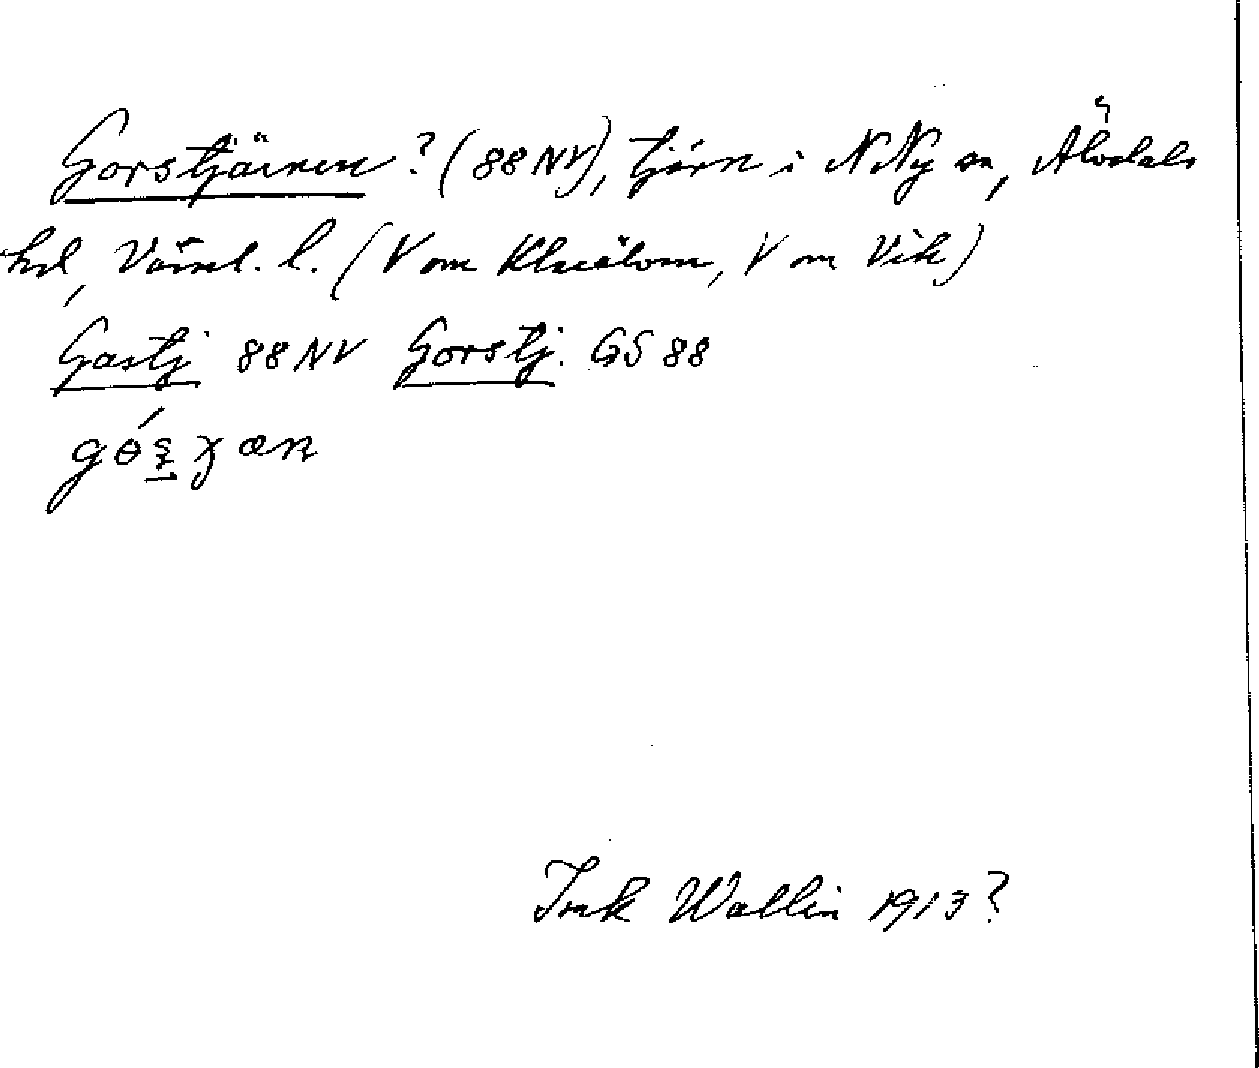 Gorstjärnen? (88NV), tjärn i N Ny sn, Älvdals
hd, Värml. l. (V om Klarälven, V om Vik)
Gastj 88NV Gorstj. GS 88
Wallin 1913?